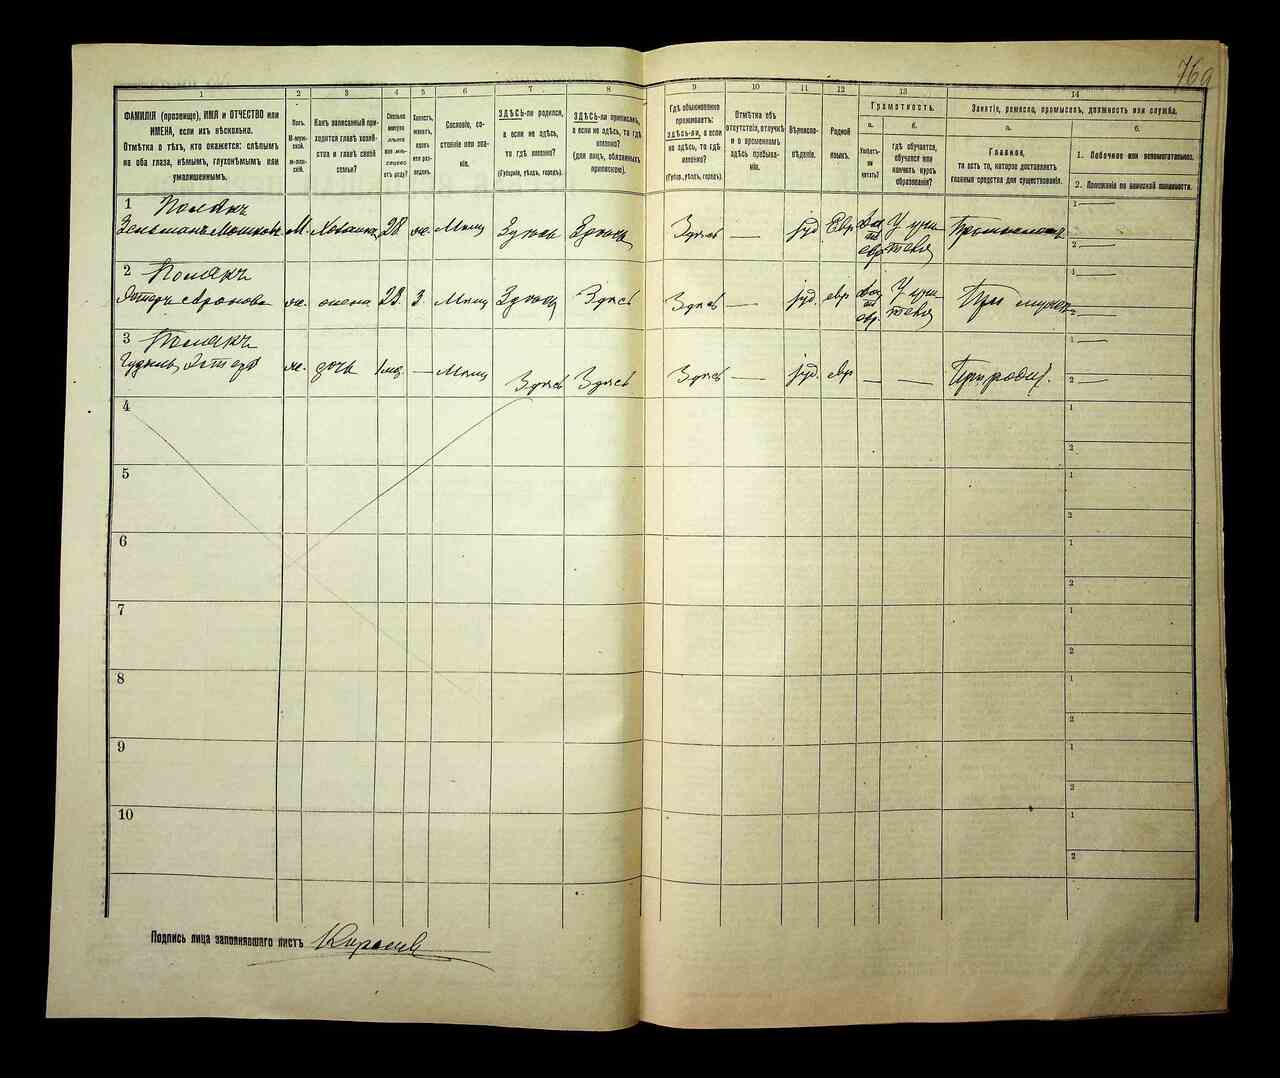 76а
1
ФАМИЛІЯ (прозвище), ИМЯ и ОТЧЕСТВО или
ИМЕНА, если ихъ нѣсколько.
Отмѣтка о тѣхъ, кто окажется: слѣпымъ
на оба глаза, нѣмымъ, глухонѣмымъ или
умалишеннымъ.
2
Полъ.
М-муж-
ской.
ж-жен-
скій.
3
Какъ записанный при-
ходится главѣ хозяй-
ства и главѣ своей
семьи?
4
Сколько
минуло
лѣтъ
или мѣ-
сяцевъ
отъ роду?
5
Холостъ,
женатъ,
вдовъ
или раз-
веденъ.
6
Сословіе, со-
стояніе или зва-
ніе.
7
ЗДѢСЬ-ли родился,
а если не здѣсь,
то гдѣ именно?
(Губернія, уѣздъ, городъ).
8
ЗДѢСЬ-ли приписанъ,
а если не здѣсь, то гдѣ
именно?
(для лицъ, обязанныхъ
припискою).
9
Гдѣ обыкновенно
проживаетъ:
ЗДѢСЬ-ли, а если
не здѣсь, то гдѣ
именно?
(Губер., уѣздъ, городъ).
10
Отмѣтка объ
отсутствіи, отлучкѣ
и о временномъ
здѣсь пребыва-
ніи.
11
Вѣроиспо-
вѣданіе.
12
Родной
языкъ.
13
Грамотность.
а.
Умѣетъ-
ли
читать?
б.
гдѣ обучается,
обучался или
кончилъ курсъ
образованія?
14
Занятіе, ремесло, промыселъ, должность или служба.
а.
Главное,
то есть то, которое доставляетъ
главныя средства для существованія.
б.
1. Побочное или вспомогательное.
2. Положеніе по воинской повинности.
1 Полякъ
Зельманъ Мошковъ М Хозяинъ 28 ж. Мѣщ Здѣсь Здѣсь Здѣсь — іуд Евр Да по евр У учи-теля
1 —
2 —
2 Полякъ
Эстеръ Аронова ж. жена 23 З Мѣщ Здѣсь Здѣсь Здѣсь — іуд. евр Да по евр. У учи-теля При мужѣ
1 —
2 —
3 Полякъ
ж. дочь 1 мѣ. — Мѣщ Здѣсь Здѣсь Здѣсь — іуд. евр — — При родит.
1 —
2 —
4
1
2
5
1
2
6
1
2
7
1
2
8
1
2
9
1
2
10
1
2
Подпись лица заполнявшаго листъ